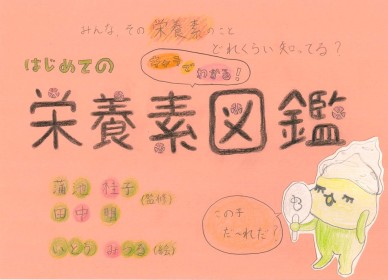 みんな、その栄養素のこと
どれくらい知ってる?
はじめての
キャラでわかる!
栄養素図鑑
蒲池 桂子
田中 明
(監修)
いとう みつる(絵)
この手
だ〜れだ?